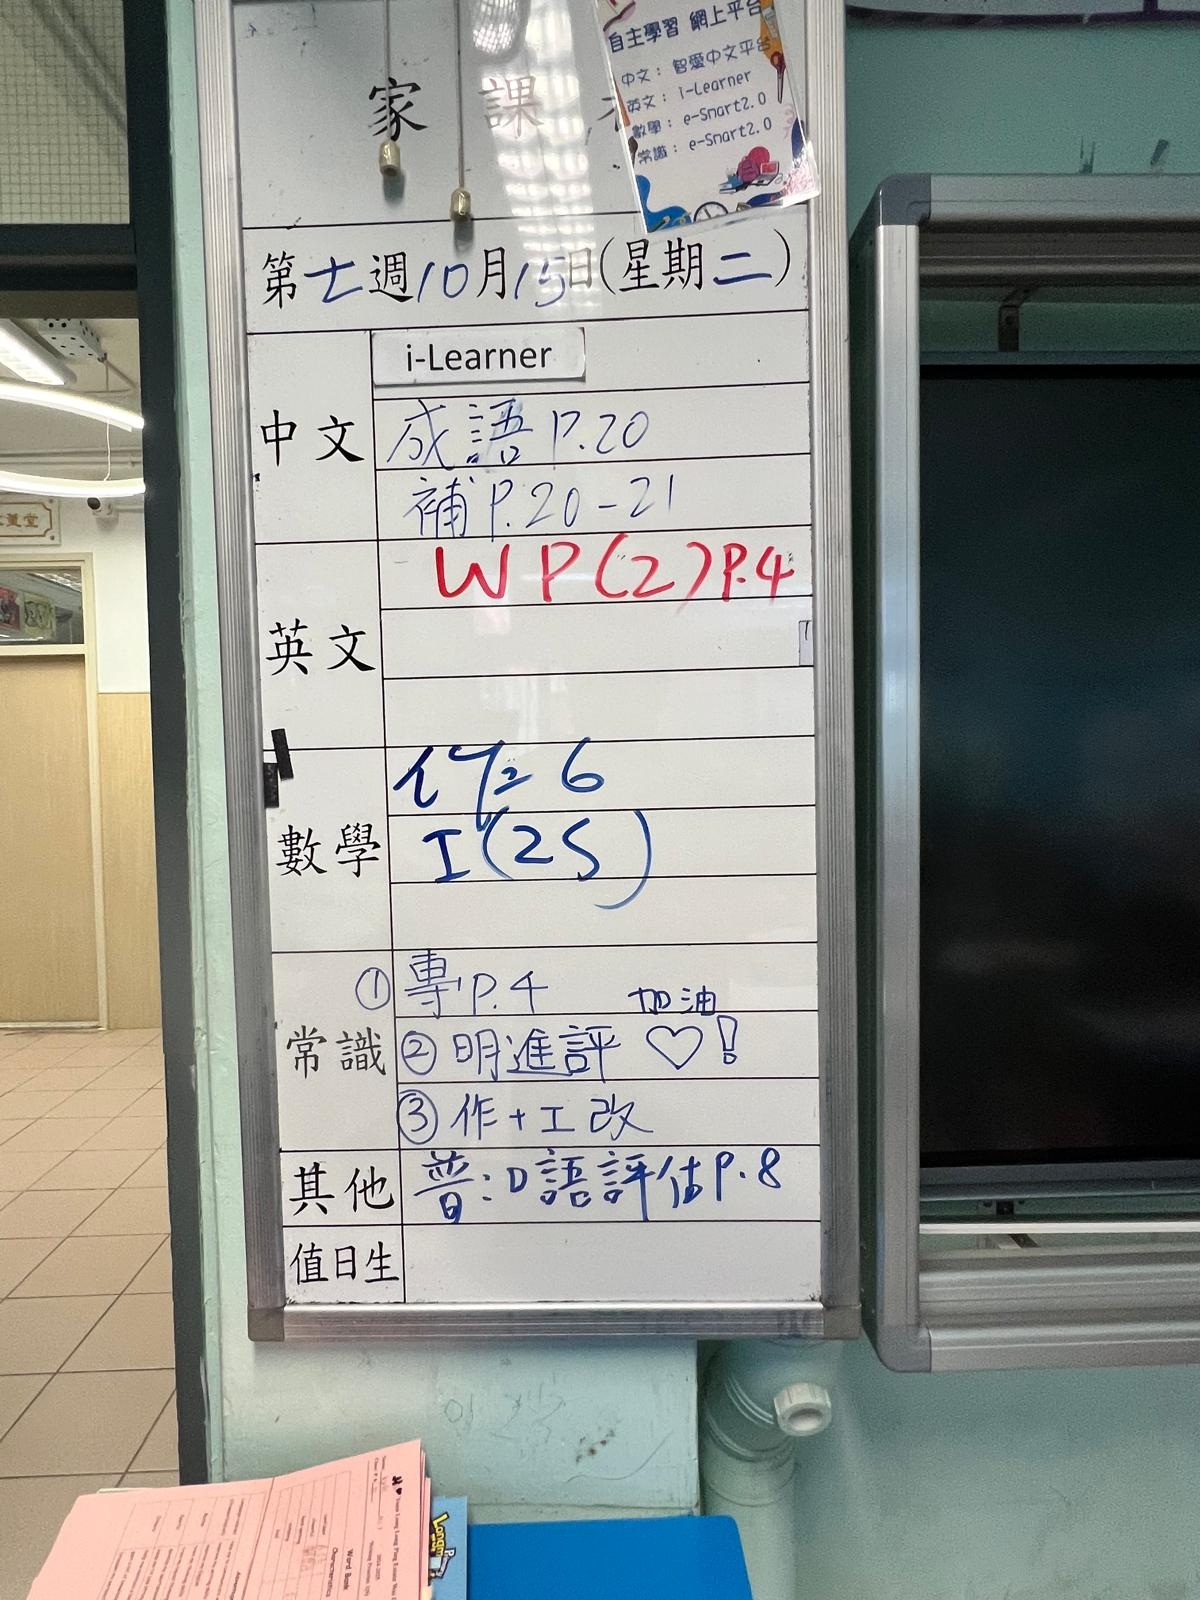 自主學習 網上平台
中文： 智愛中文平台
英文： i-Learner
數學： e-Smart2.0
常識： e-Smart2.0
家 課
第七週10月15日(星期二)
中文
i-Learner
成語 P.20
補 P.20-21
英文
WP(2) P.4
數學
6
I(25)
常識
① 專 P.4
加油
② 明進評 ♡!
③ 作+工改
其他
普:口語評估P.8
值日生
Word Bank